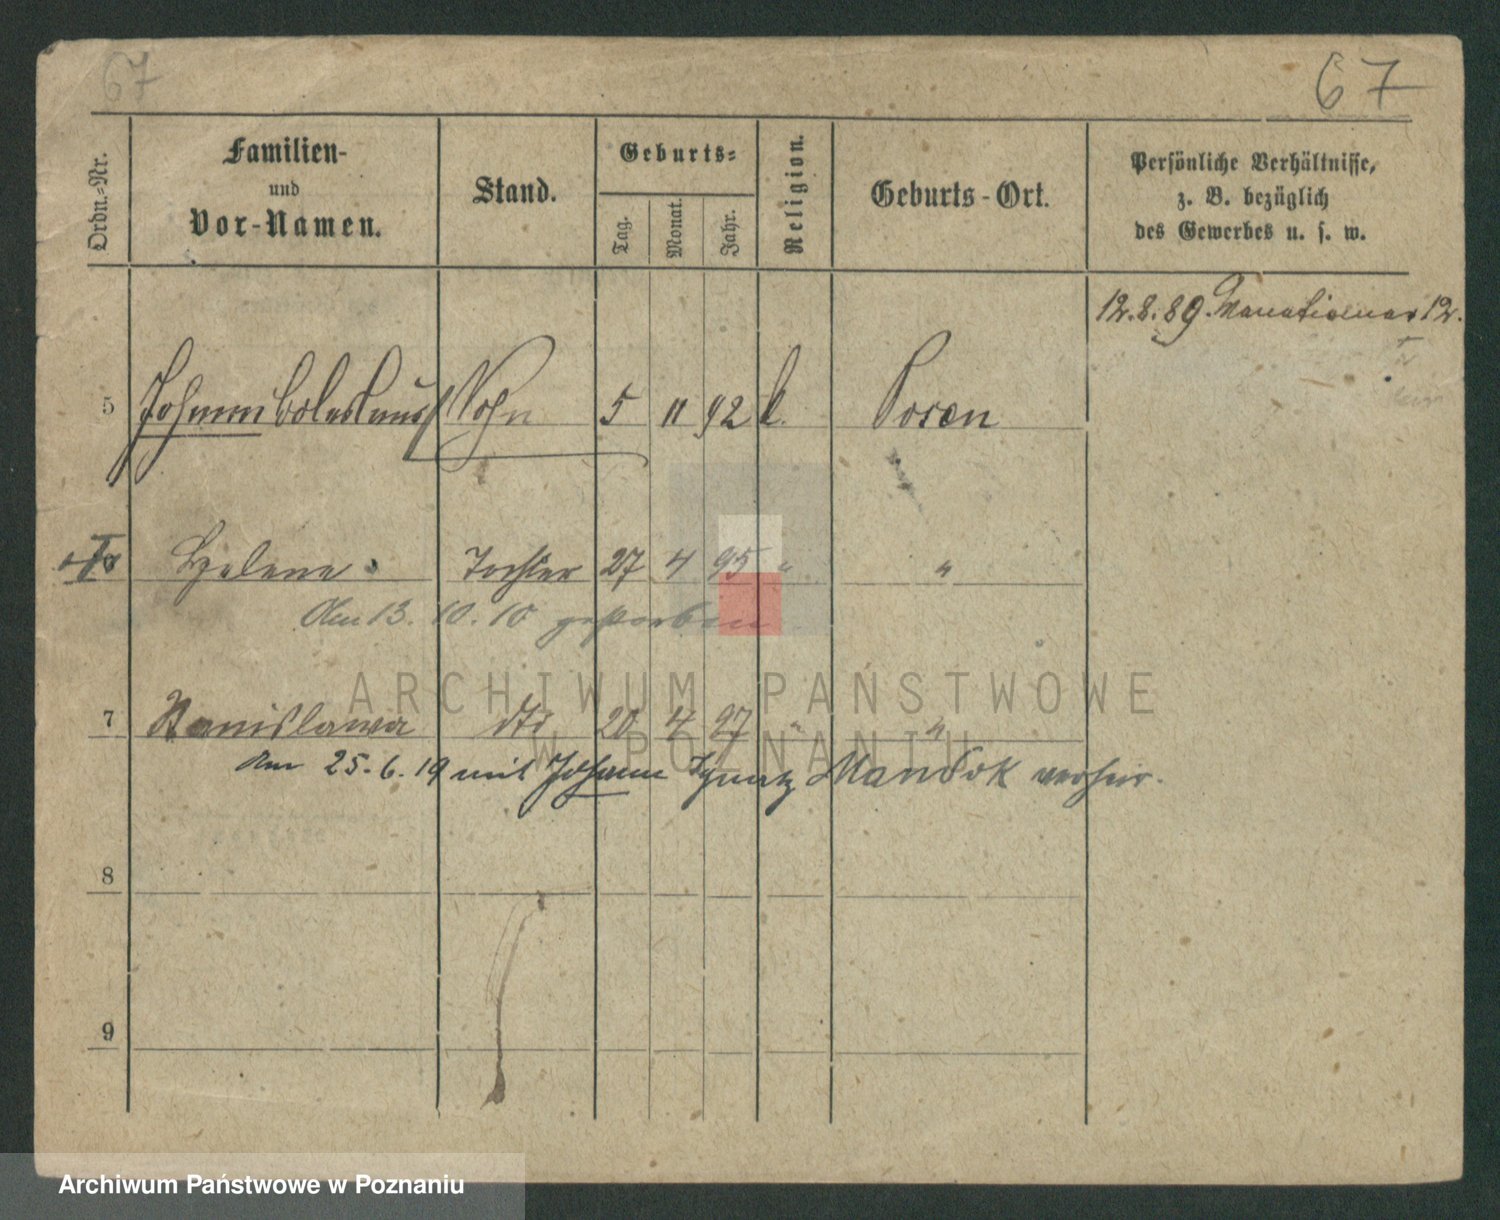 67 67
Ordn.-Nr.
Familien-
und
Vor-Namen.
Stand.
Geburts-
Tag. Monat. Jahr.
Religion.
Geburts-Ort.
Persönliche Verhältnisse,
z. B. bezüglich
des Gewerbes u. s. w.
12.8.89. 12.
5 Johann Boleslaus Sohn 5 11 92 k. Posen
Helene Tochter 27 4 95 " "
Am 13. 10. 10 gestorben
7 Stanislawa dto 20 4 97 " "
Am 25.6.19 mit Johann Ignatz verheir.
8
9
ARCHIWUM PAŃSTWOWE
W POZNANIU
Archiwum Państwowe w Poznaniu